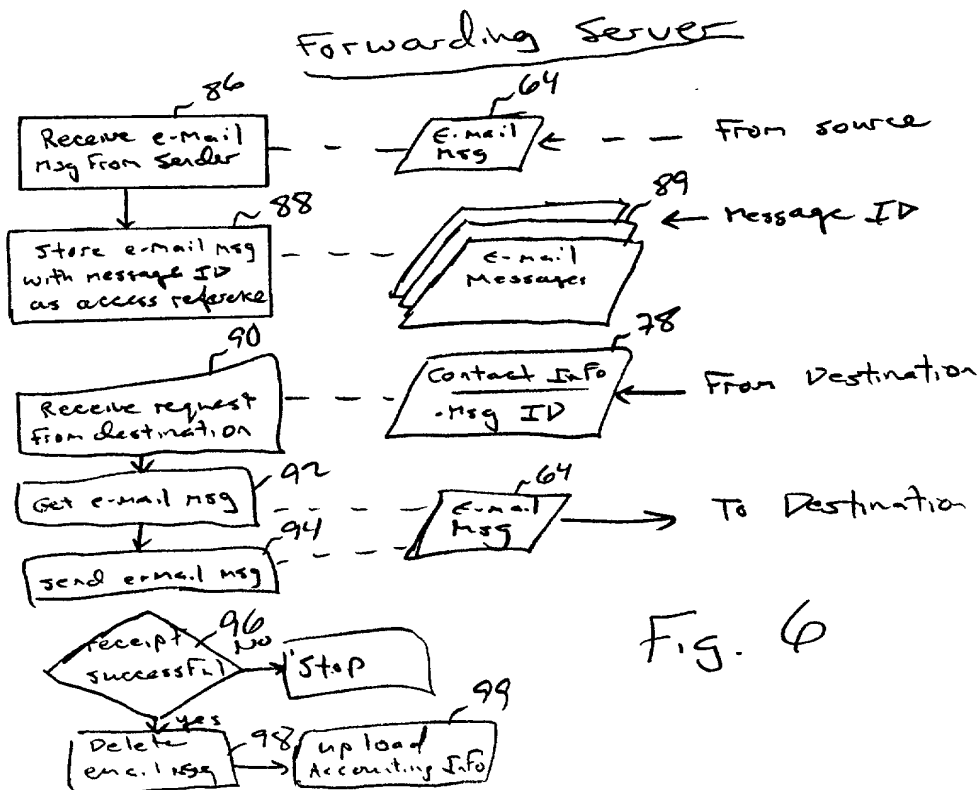 Forwarding Server
86
Receive e-mail
msg From Sender
64
E-mail
msg
From source
88
Store e-mail msg
with message ID
as access reference
89
Message ID
E-mail
Messages
90
Receive request
from destination
78
Contact Info
-Msg ID
From Destination
92
Get e-mail msg
64
E-mail
Msg
To Destination
94
send e-mail msg
96
receipt
successful
No
Stop
yes
98
Delete
email msg
99
upload
Accounting Info
Fig. 6